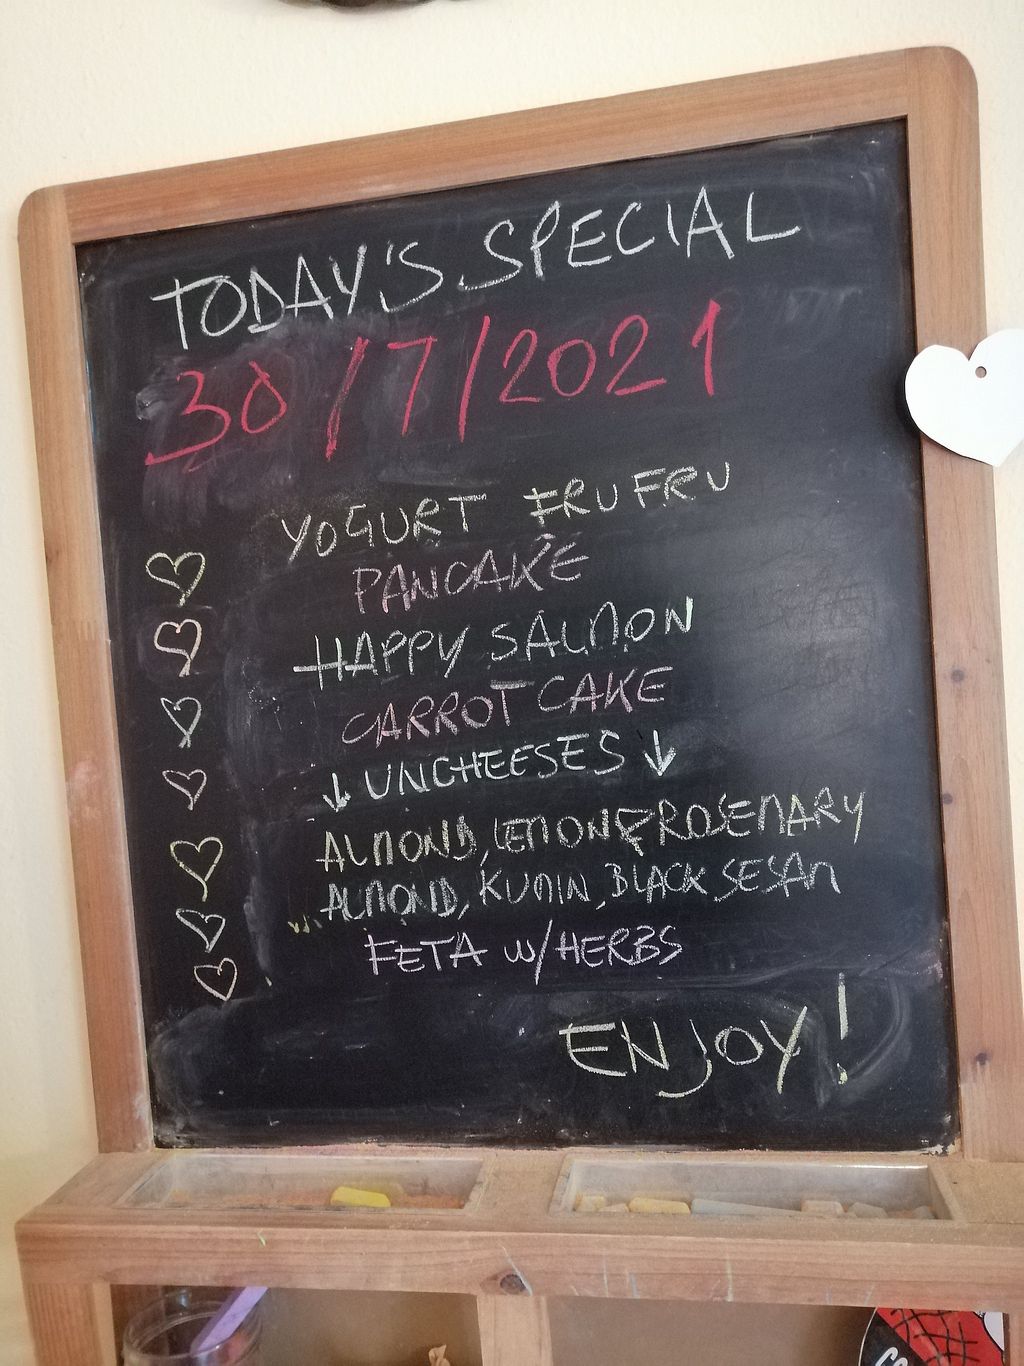 TODAY'S SPECIAL
30/7/2021
YOGURT FRUFRU
PANCAKE
HAPPY SALMON
CARROT CAKE
↓ UNCHEESES ↓
ALMOND, LEMON & ROSEMARY
ALMOND, KUMIN, BLACK SESAM
FETA W/HERBS
ENJOY!